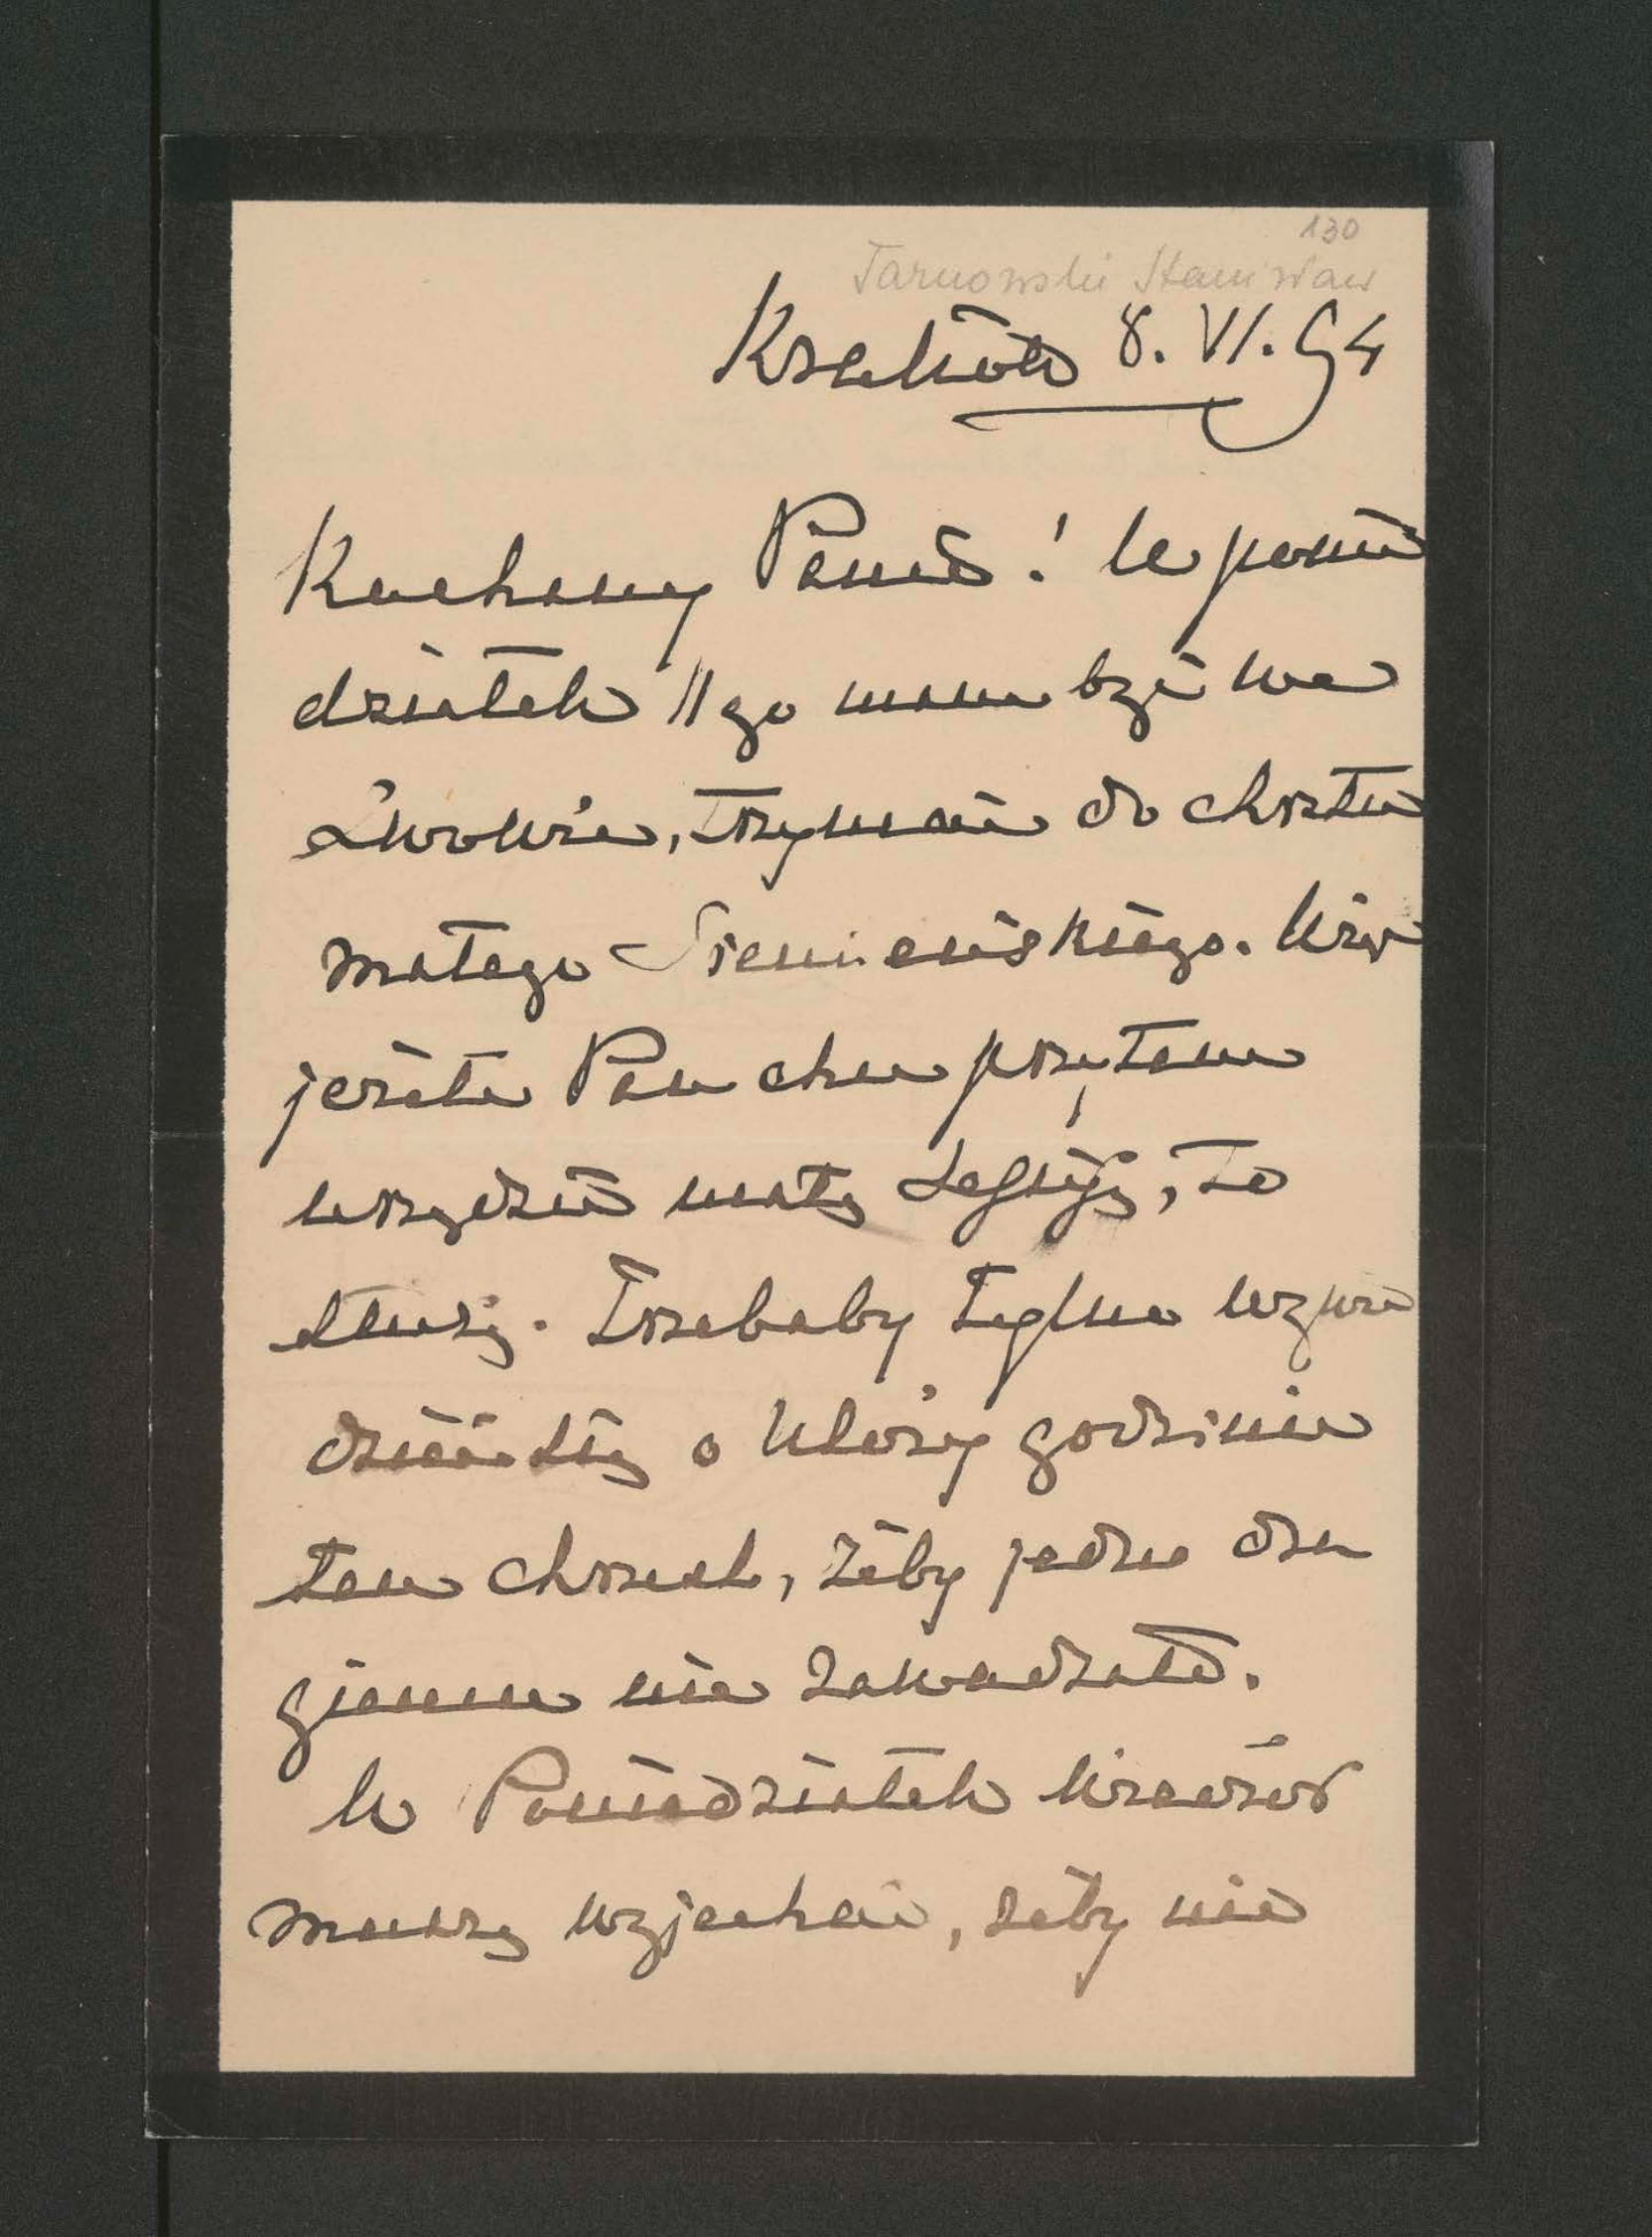 130
Tarnowski Stanisław
Kraków 8. VI. 94
Kochany Panie! W ponie
działek 11go mam być we
Lwowie, trzymać do chrztu
małego Siemieńskiego. Więc
jeżeli Pan chce przytem
urządzić małą sessyję, to
służę. Trzebaby tylko wywie
dzieć się o której godzinie
ten chrzest, żeby jedno dru
giemu nie zawadzało.
W Poniedziałek wieczór
muszę wyjechać, żeby nie